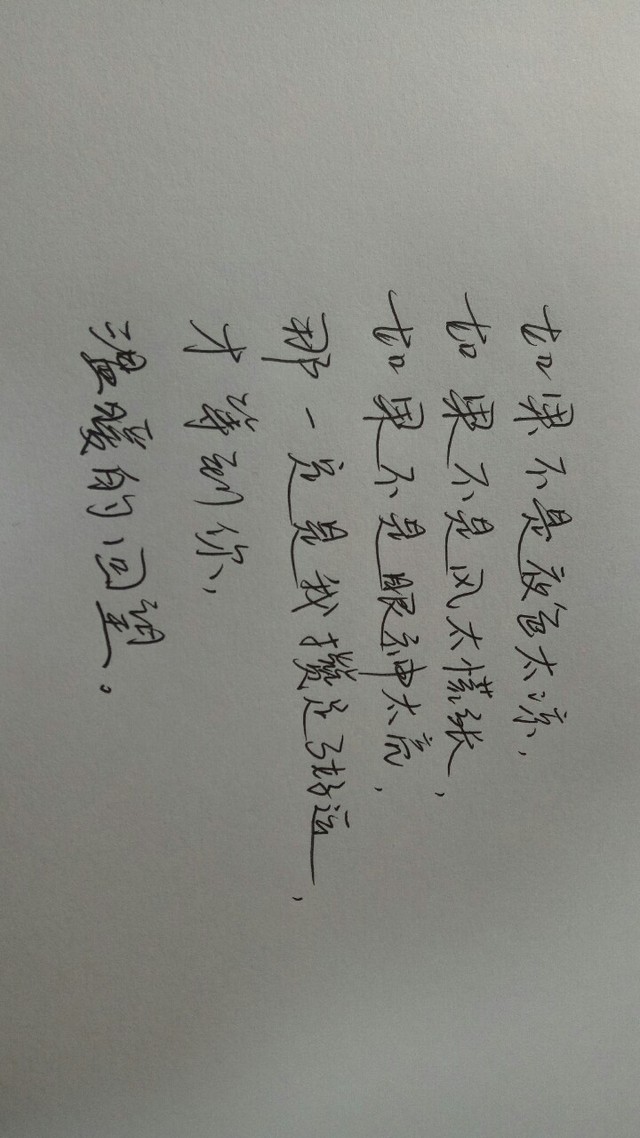 如果不是夜色太凉，
如果不是风太慌张，
如果不是眼神太亮，
那一定是我攒足了好运，
才等到你，
温暖的回望。